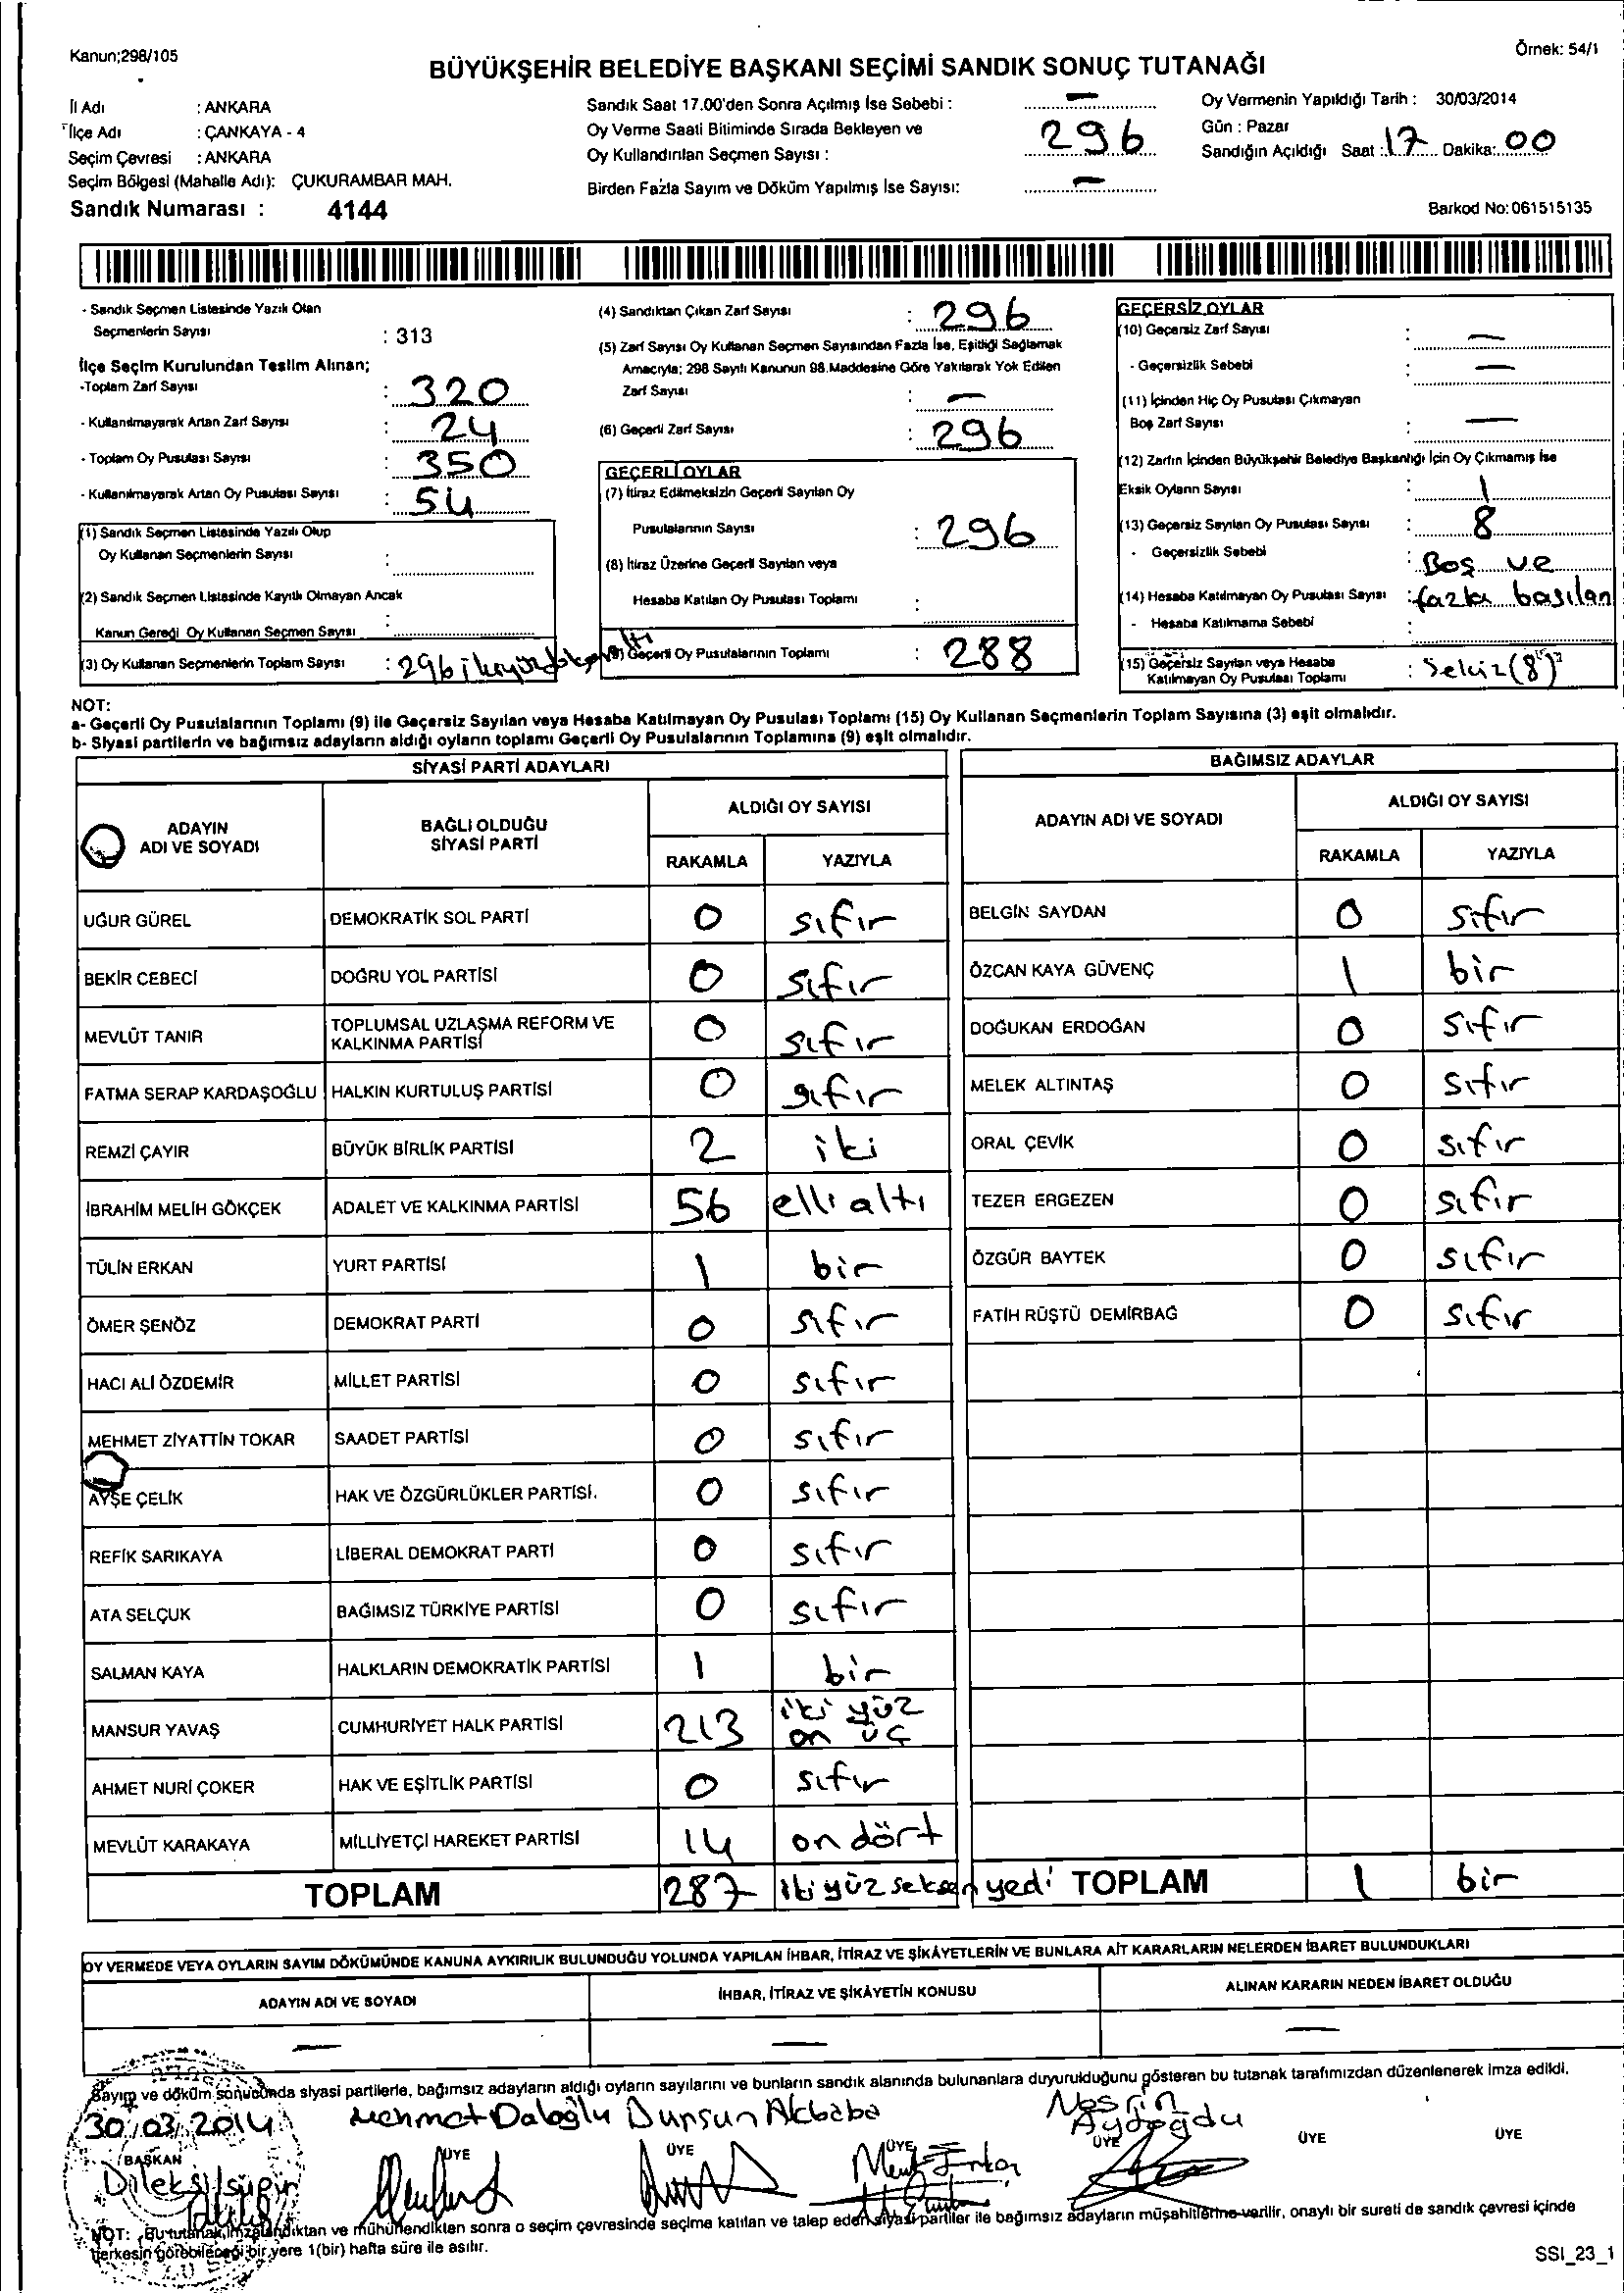 Kanun;298/105
Örnek: 54/1
BÜYÜKŞEHİR BELEDİYE BAŞKANI SEÇİMİ SANDIK SONUÇ TUTANAĞI
İl Adı : ANKARA
İlçe Adı : ÇANKAYA - 4
Seçim Çevresi : ANKARA
Seçim Bölgesi (Mahalle Adı): ÇUKURAMBAR MAH.
Sandık Numarası : 4144
Sandık Saat 17.00'den Sonra Açılmış İse Sebebi : —
Oy Verme Saati Bitiminde Sırada Bekleyen ve
Oy Kullandırılan Seçmen Sayısı : 296
Birden Fazla Sayım ve Döküm Yapılmış İse Sayısı: —
Oy Vermenin Yapıldığı Tarih : 30/03/2014
Gün : Pazar
Sandığın Açıldığı Saat : 17 Dakika: 00
Barkod No: 061515135
- Sandık Seçmen Listesinde Yazılı Olan
Seçmenlerin Sayısı : 313
İlçe Seçim Kurulundan Teslim Alınan;
-Toplam Zarf Sayısı : 320
- Kullanılmayarak Artan Zarf Sayısı : 24
- Toplam Oy Pusulası Sayısı : 350
- Kullanılmayarak Artan Oy Pusulası Sayısı : 54
(1) Sandık Seçmen Listesinde Yazılı Olup
Oy Kullanan Seçmenlerin Sayısı :
(2) Sandık Seçmen Listesinde Kayıtlı Olmayan Ancak
Kanun Gereği Oy Kullanan Seçmen Sayısı :
(3) Oy Kullanan Seçmenlerin Toplam Sayısı : 296 ikiyüzdoksanaltı
(4) Sandıktan Çıkan Zarf Sayısı : 296
(5) Zarf Sayısı Oy Kullanan Seçmen Sayısından Fazla İse, Eşitliği Sağlamak
Amacıyla; 298 Sayılı Kanunun 98.Maddesine Göre Yakılarak Yok Edilen
Zarf Sayısı : —
(6) Geçerli Zarf Sayısı : 296
GEÇERLİ OYLAR
(7) İtiraz Edilmeksizin Geçerli Sayılan Oy
Pusulalarının Sayısı : 296
(8) İtiraz Üzerine Geçerli Sayılan veya
Hesaba Katılan Oy Pusulası Toplamı :
(9) Geçerli Oy Pusulalarının Toplamı : 288
GEÇERSİZ OYLAR
(10) Geçersiz Zarf Sayısı : —
- Geçersizlik Sebebi : —
(11) İçinden Hiç Oy Pusulası Çıkmayan
Boş Zarf Sayısı : —
(12) Zarfın İçinden Büyükşehir Belediye Başkanlığı İçin Oy Çıkmamış İse
Eksik Oyların Sayısı : 1
(13) Geçersiz Sayılan Oy Pusulası Sayısı : 8
- Geçersizlik Sebebi : Boş ve
(14) Hesaba Katılmayan Oy Pusulası Sayısı : fazla basılan
- Hesaba Katılmama Sebebi :
(15) Geçersiz Sayılan veya Hesaba
Katılmayan Oy Pusulası Toplamı : Sekiz (8)
NOT:
a- Geçerli Oy Pusulalarının Toplamı (9) ile Geçersiz Sayılan veya Hesaba Katılmayan Oy Pusulası Toplamı (15) Oy Kullanan Seçmenlerin Toplam Sayısına (3) eşit olmalıdır.
b- Siyasi partilerin ve bağımsız adayların aldığı oyların toplamı Geçerli Oy Pusulalarının Toplamına (9) eşit olmalıdır.
SİYASİ PARTİ ADAYLARI
ADAYIN
ADI VE SOYADI
BAĞLI OLDUĞU
SİYASİ PARTİ
ALDIĞI OY SAYISI
RAKAMLA YAZIYLA
UĞUR GÜREL DEMOKRATİK SOL PARTİ 0 sıfır
BEKİR CEBECİ DOĞRU YOL PARTİSİ 0 sıfır
MEVLÜT TANIR TOPLUMSAL UZLAŞMA REFORM VE
KALKINMA PARTİSİ 0 sıfır
FATMA SERAP KARDAŞOĞLU HALKIN KURTULUŞ PARTİSİ 0 sıfır
REMZİ ÇAYIR BÜYÜK BİRLİK PARTİSİ 2 iki
İBRAHİM MELİH GÖKÇEK ADALET VE KALKINMA PARTİSİ 56 elli altı
TÜLİN ERKAN YURT PARTİSİ 1 bir
ÖMER ŞENÖZ DEMOKRAT PARTİ 0 sıfır
HACI ALİ ÖZDEMİR MİLLET PARTİSİ 0 sıfır
MEHMET ZİYATTİN TOKAR SAADET PARTİSİ 0 sıfır
AYŞE ÇELİK HAK VE ÖZGÜRLÜKLER PARTİSİ. 0 sıfır
REFİK SARIKAYA LİBERAL DEMOKRAT PARTİ 0 sıfır
ATA SELÇUK BAĞIMSIZ TÜRKİYE PARTİSİ 0 sıfır
SALMAN KAYA HALKLARIN DEMOKRATİK PARTİSİ 1 bir
MANSUR YAVAŞ CUMHURİYET HALK PARTİSİ 213 iki yüz
on üç
AHMET NURİ ÇOKER HAK VE EŞİTLİK PARTİSİ 0 sıfır
MEVLÜT KARAKAYA MİLLİYETÇİ HAREKET PARTİSİ 14 on dört
TOPLAM 287 iki yüz seksen yedi
BAĞIMSIZ ADAYLAR
ADAYIN ADI VE SOYADI
ALDIĞI OY SAYISI
RAKAMLA YAZIYLA
BELGİN SAYDAN 0 sıfır
ÖZCAN KAYA GÜVENÇ 1 bir
DOĞUKAN ERDOĞAN 0 sıfır
MELEK ALTINTAŞ 0 sıfır
ORAL ÇEVİK 0 sıfır
TEZER ERGEZEN 0 sıfır
ÖZGÜR BAYTEK 0 sıfır
FATİH RÜŞTÜ DEMİRBAĞ 0 sıfır
TOPLAM 1 bir
OY VERMEDE VEYA OYLARIN SAYIM DÖKÜMÜNDE KANUNA AYKIRILIK BULUNDUĞU YOLUNDA YAPILAN İHBAR, İTİRAZ VE ŞİKÂYETLERİN VE BUNLARA AİT KARARLARIN NELERDEN İBARET BULUNDUKLARI
ADAYIN ADI VE SOYADI İHBAR, İTİRAZ VE ŞİKÂYETİN KONUSU ALINAN KARARIN NEDEN İBARET OLDUĞU
— — —
Sayım ve döküm sonucunda siyasi partilerle, bağımsız adayların aldığı oyların sayılarını ve bunların sandık alanında bulunanlara duyurulduğunu gösteren bu tutanak tarafımızdan düzenlenerek imza edildi.
30/03/2014 Mehmet Daloğlu Dursun Akbaba Nesrin
Aydoğdu
BAŞKAN ÜYE ÜYE ÜYE ÜYE ÜYE ÜYE
NOT: Bu tutanak, imzalandıktan ve mühürlendikten sonra o seçim çevresinde seçime katılan ve talep eden siyasi partiler ile bağımsız adayların müşahitlerine verilir, onaylı bir sureti de sandık çevresi içinde
herkesin görebileceği bir yere 1(bir) hafta süre ile asılır.
SSI_23_1